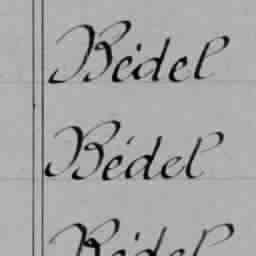 Bédel
Bédel
Bédel